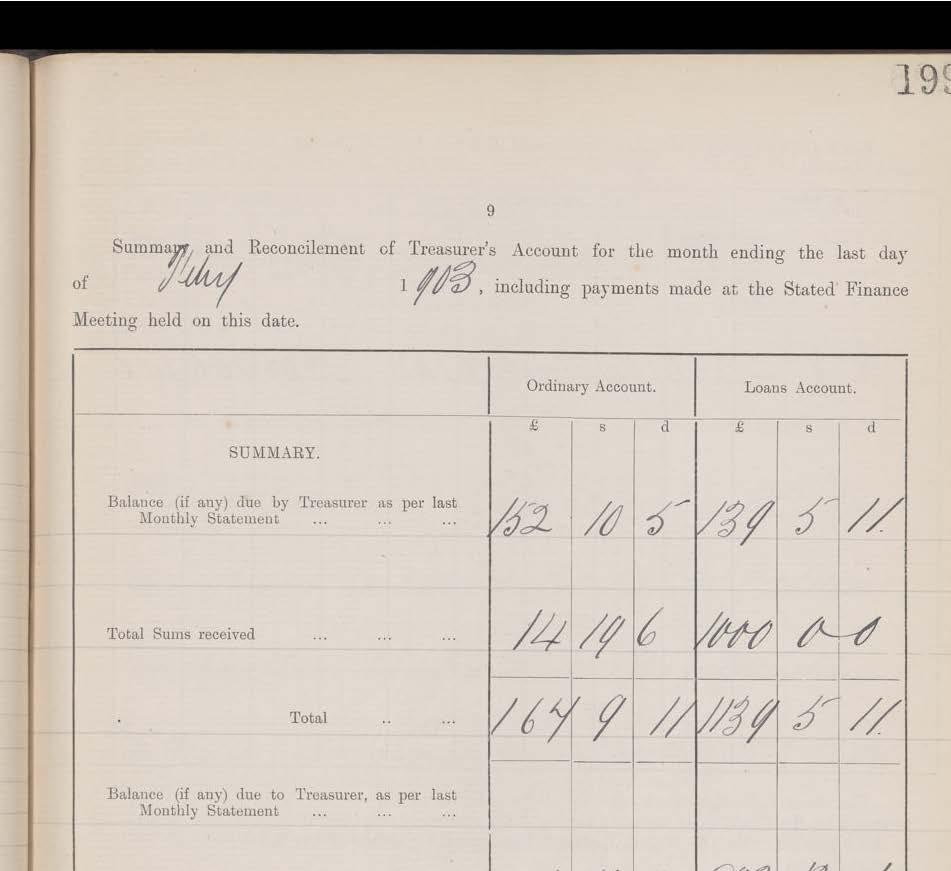 199
9
Summary and Reconcilement of Treasurer's Account for the month ending the last day
of Feby 1903, including payments made at the Stated Finance
Meeting held on this date.
Ordinary Account. Loans Account.
£ s d £ s d
SUMMARY.
Balance (if any) due by Treasurer as per last
Monthly Statement ... ... ... 152 10 5 139 5 11.
Total Sums received ... ... ... 14 19 6 1000 0 0
Total .. ... 167 9 11 1139 5 11.
Balance (if any) due to Treasurer, as per last
Monthly Statement ... ... ...